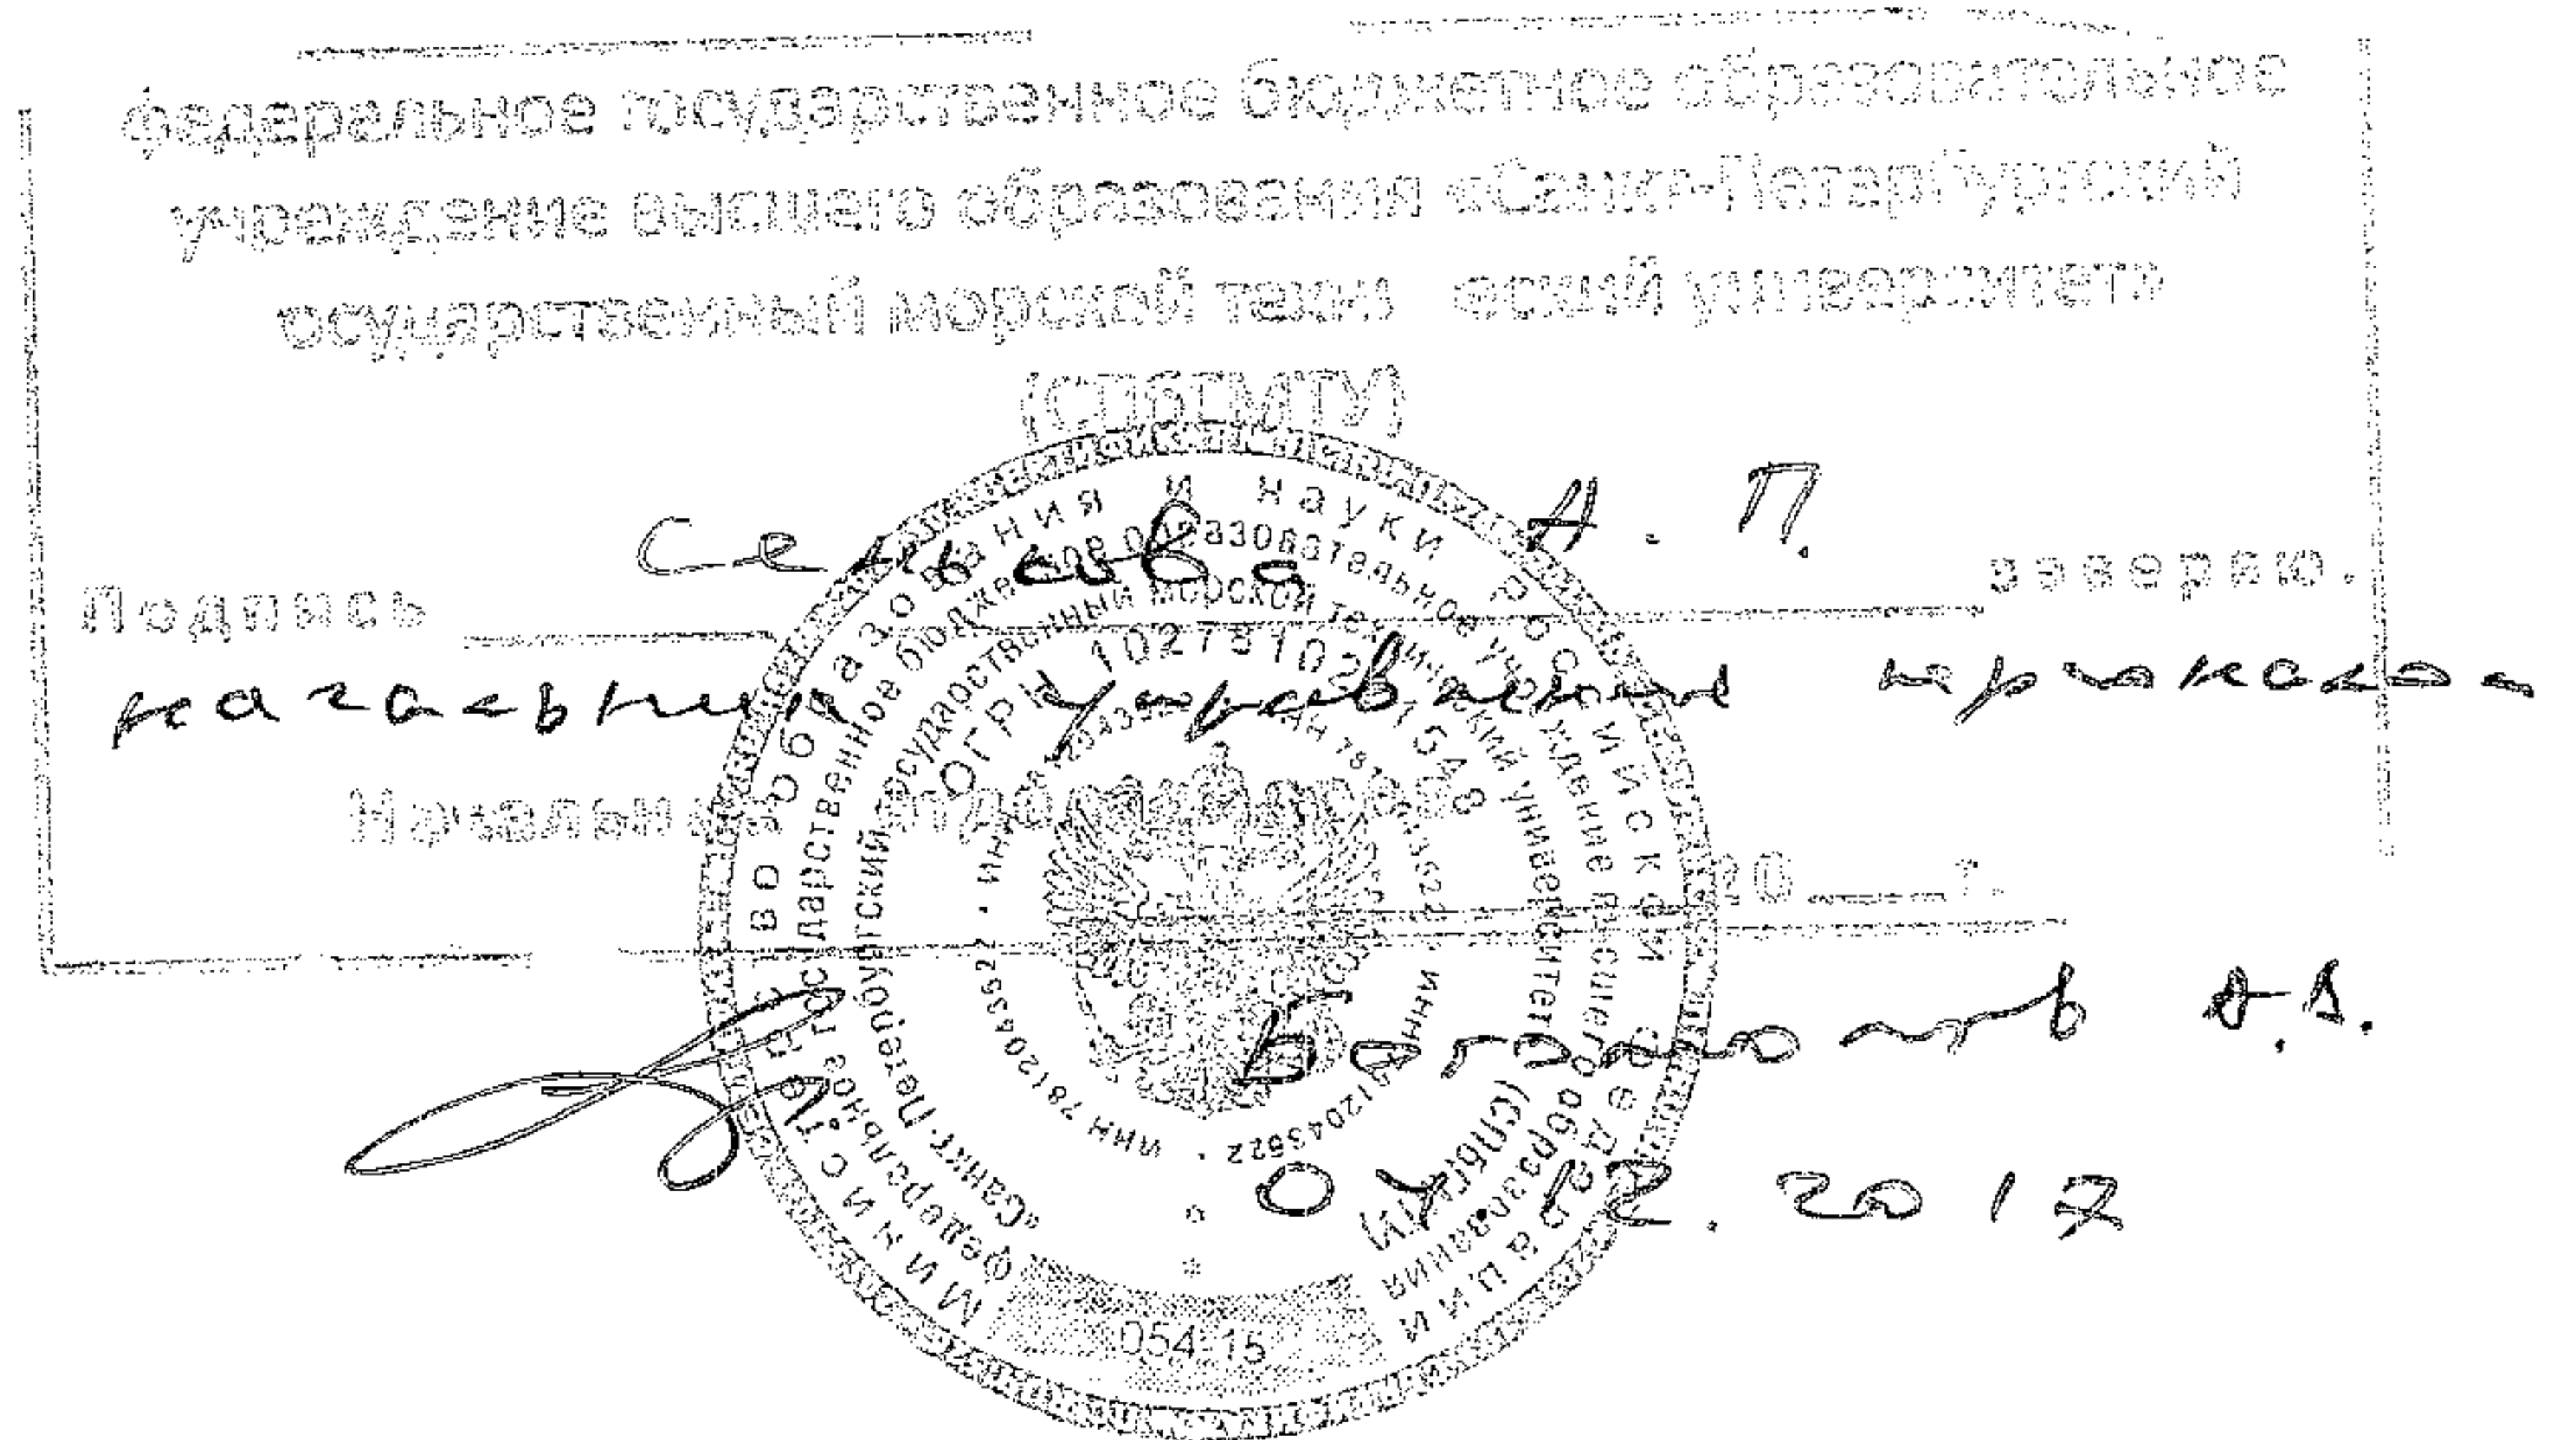 федеральное государственное бюджетное образовательное
учреждение высшего образования «Санкт-Петербургский
осударственный морской техн еский университет»
(СПбГМТУ)
А. П.
Подпись заверяю.
начальник управления персонала
Начальник отдела кадров
20 г.
А.А.
2017
Министерство образования и науки Российской Федерации
федеральное государственное бюджетное образовательное учреждение высшего образования
«Санкт-Петербургский государственный морской технический университет»
(СПбГМТУ)
ОГРН
ИНН 7812043522 • ИНН 7812043522 • ИНН
054-15